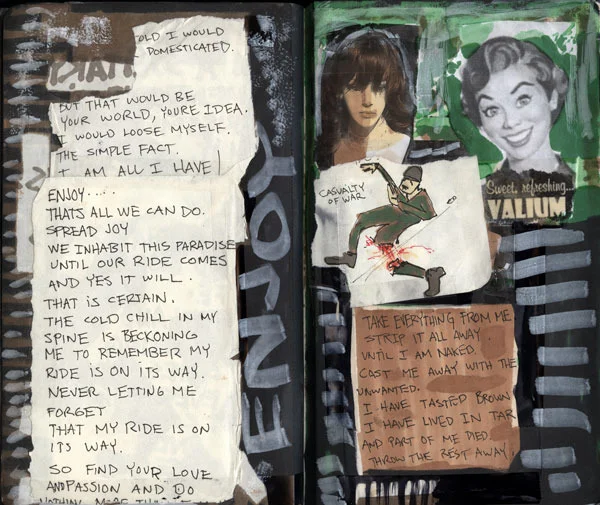 OLD I WOULD
DOMESTICATED.
BUT THAT WOULD BE
YOUR WORLD, YOURE IDEA.
I WOULD LOOSE MYSELF.
THE SIMPLE FACT.
I AM ALL I HAVE!
ENJOY.....
THATS ALL WE CAN DO.
SPREAD JOY
WE INHABIT THIS PARADISE
UNTIL OUR RIDE COMES
AND YES IT WILL.
THAT IS CERTAIN.
THE COLD CHILL IN MY
SPINE IS BECKONING
ME TO REMEMBER MY
RIDE IS ON ITS WAY.
NEVER LETTING ME
FORGET
THAT MY RIDE IS ON
ITS WAY.
SO FIND YOUR LOVE
AND PASSION AND DO
NOTHING MORE
ENJOY
CASUALTY
OF WAR
Sweet, refreshing...
VALIUM
TAKE EVERYTHING FROM ME
STRIP IT ALL AWAY
UNTIL I AM NAKED.
CAST ME AWAY WITH THE
UNWANTED.
I HAVE TASTED BROWN
I HAVE LIVED IN TAR
AND PART OF ME DIED.
THROW THE REST AWAY!